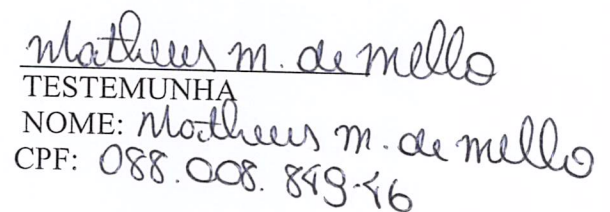 Matheus m. de mello
TESTEMUNHA
NOME: Matheus m. de mello
CPF: 088.008.849-46